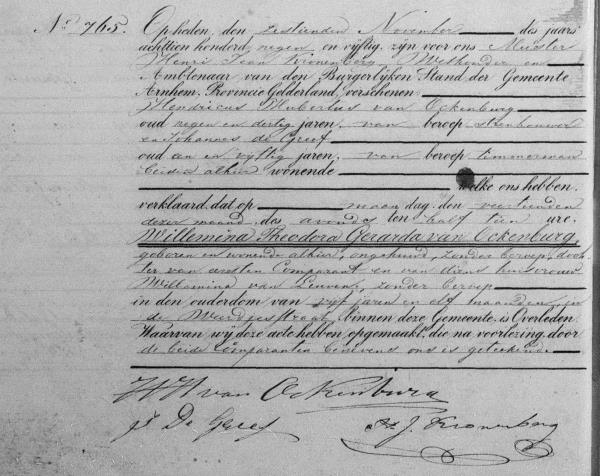 No 765. Op heden, den zestienden November des jaars
achttien honderd, negen en vijftig, zijn voor ons Meester
Henri Jean Kronenberg, Wethouder en
Ambtenaar van den Burgerlijken Stand der Gemeente
Arnhem, Provincie Gelderland, verschenen
Hendricus Hubertus van Ockenburg
oud negen en dertig jaren, van beroep steenhouwer
en Johannes de Greef
oud en vijftig jaren, van beroep timmerman
beide alhier wonende
welke ons hebben
verklaard, dat op maan dag, den veertienden
dezer maand, des avonds ten half tien ure,
Willemina Theodora Gerarda van Ockenburg,
geboren en wonende alhier, ongehuwd, zonder beroep, doch-
ter van eersten Comparant en van diens huisvrouw
Willemina van Leuven, zonder beroep
in den ouderdom van vijf jaren en elf maanden, in
de binnen deze Gemeente is Overleden
Waarvan wij deze acte hebben opgemaakt, die na voorlezing door
de beide Comparanten benevens ons is geteekend
HH van Ockenburg
De Greef H. J. Kronenberg